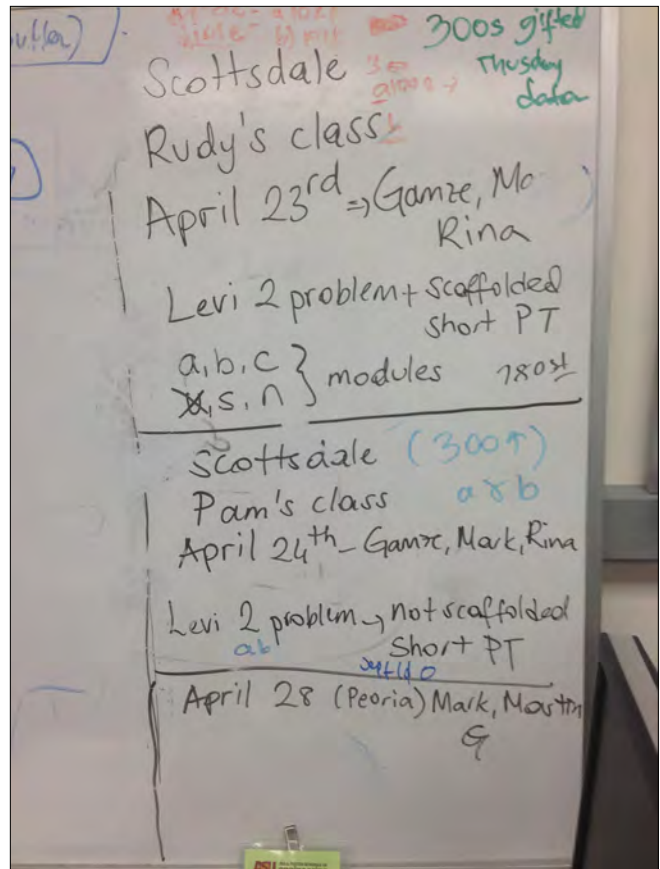 300s gifted
Thusday
data
Scottsdale
Rudy's class
April 23rd ⇒ Gamze, Mo
Rina
Levi 2 problem + scaffolded
short PT
a, b, c } modules
s, n
Scottsdale (300↑)
Pam's class a & b
April 24th - Gamze, Mark, Rina
Levi 2 problem → not scaffolded
ab
Short PT
April 28 (Peoria) Mark, Martin
G
ASU